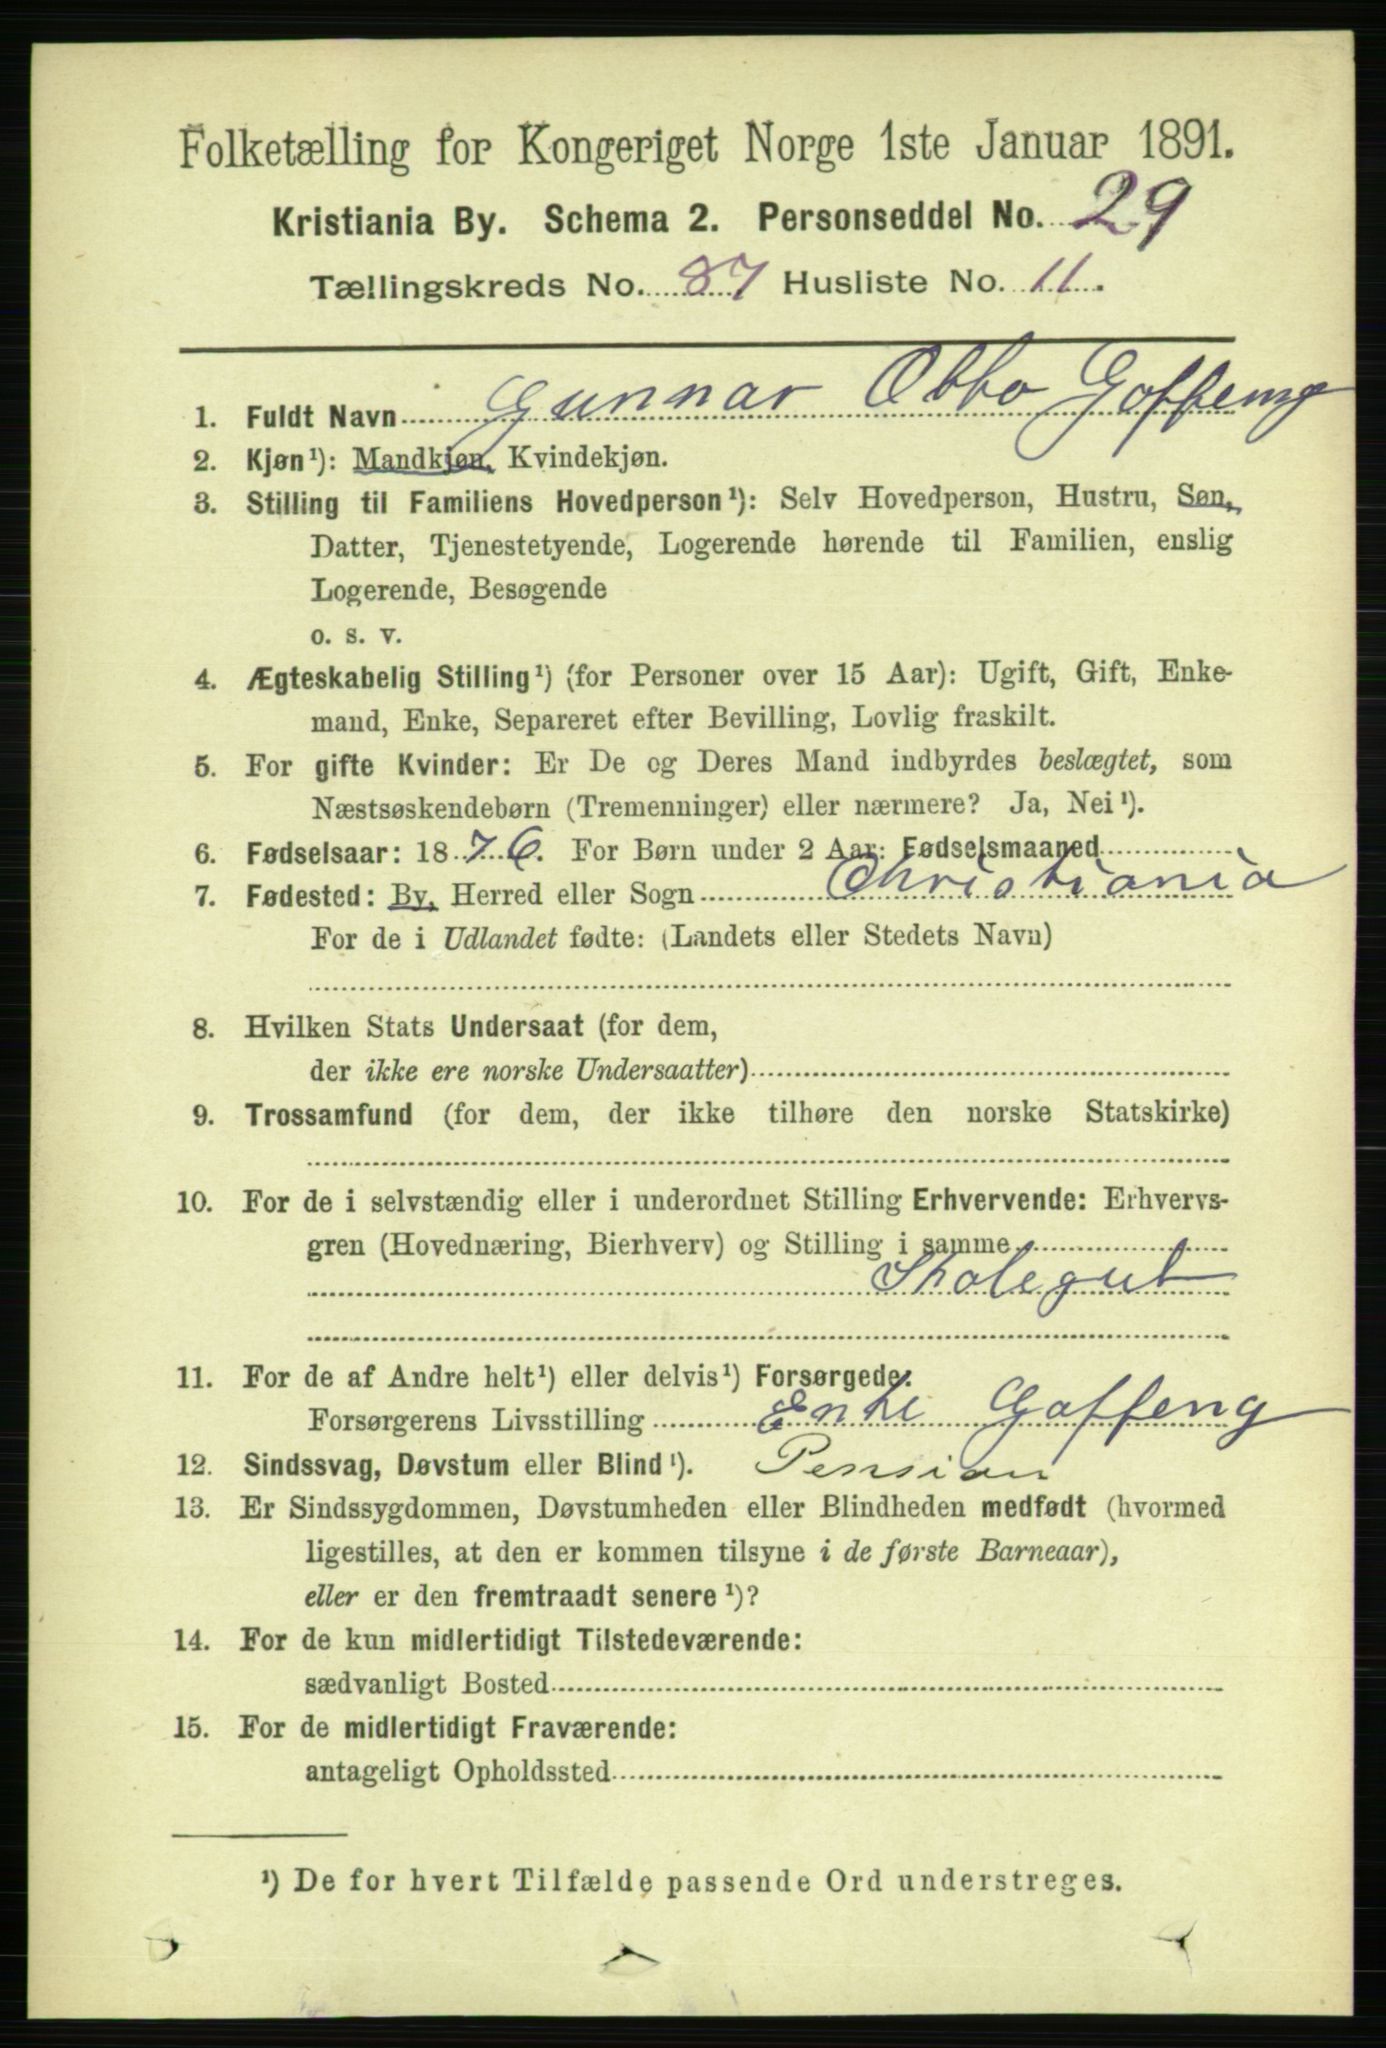 Folketælling for Kongeriget Norge 1ste Januar 1891.
Kristiania By. Schema 2. Personseddel No. 29
Tællingskreds No. 87 Husliste No. 11.
1. Fuldt Navn Gunnar Otto Gaffeng
2. Kjøn¹): Mandkjøn, Kvindekjøn.
3. Stilling til Familiens Hovedperson¹): Selv Hovedperson, Hustru, Søn,
Datter, Tjenestetyende, Logerende hørende til Familien, enslig
Logerende, Besøgende
o. s. v.
4. Ægteskabelig Stilling¹) (for Personer over 15 Aar): Ugift, Gift, Enke-
mand, Enke, Separeret efter Bevilling, Lovlig fraskilt.
5. For gifte Kvinder: Er De og Deres Mand indbyrdes beslægtet, som
Næstsøskendebørn (Tremenninger) eller nærmere? Ja, Nei¹).
6. Fødselsaar: 1876. For Børn under 2 Aar: Fødselsmaaned
7. Fødested: By, Herred eller Sogn Christiania
For de i Udlandet fødte: (Landets eller Stedets Navn)
8. Hvilken Stats Undersaat (for dem,
der ikke ere norske Undersaatter)
9. Trossamfund (for dem, der ikke tilhøre den norske Statskirke)
10. For de i selvstændig eller i underordnet Stilling Erhvervende: Erhvervs-
gren (Hovednæring, Bierhverv) og Stilling i samme
Skolegut
11. For de af Andre helt¹) eller delvis¹) Forsørgede:
Forsørgerens Livsstilling Enke Gaffeng
12. Sindssvag, Døvstum eller Blind¹). Pension
13. Er Sindssygdommen, Døvstumheden eller Blindheden medfødt (hvormed
ligestilles, at den er kommen tilsyne i de første Barneaar),
eller er den fremtraadt senere¹)?
14. For de kun midlertidigt Tilstedeværende:
sædvanligt Bosted
15. For de midlertidigt Fraværende:
antageligt Opholdssted
¹) De for hvert Tilfælde passende Ord understreges.